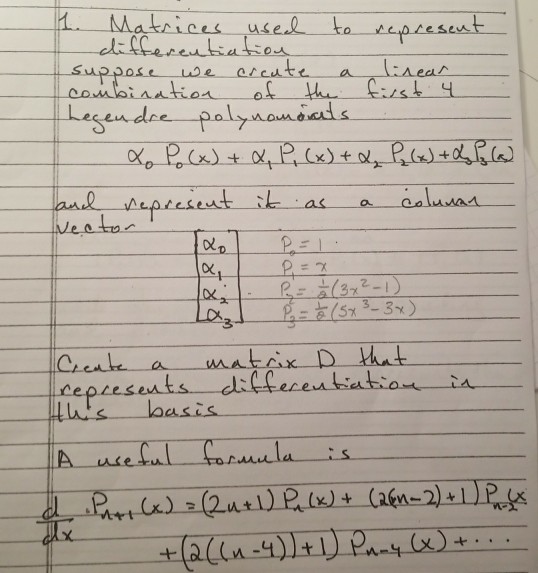 1. Matrices used to represent
differentiation
suppose we create a linear
combination of the first 4
Legendre polynomials
α₀ P₀(x) + α₁ P₁(x) + α₂ P₂(x) + α₃ P₃(x)
and represent it as a column
vector
[α₀ P₀ = 1
α₁ P₁ = x
α₂ P₂ = ½(3x² - 1)
α₃] P₃ = ½(5x³ - 3x)
Create a matrix D that
represents differentiation in
this basis
A useful formula is
d/dx P_{n+1}(x) = (2n+1) P_n(x) + (2(n-2)+1) P_{n-2}(x
+ (2((n-4))+1) P_{n-4}(x) + ...